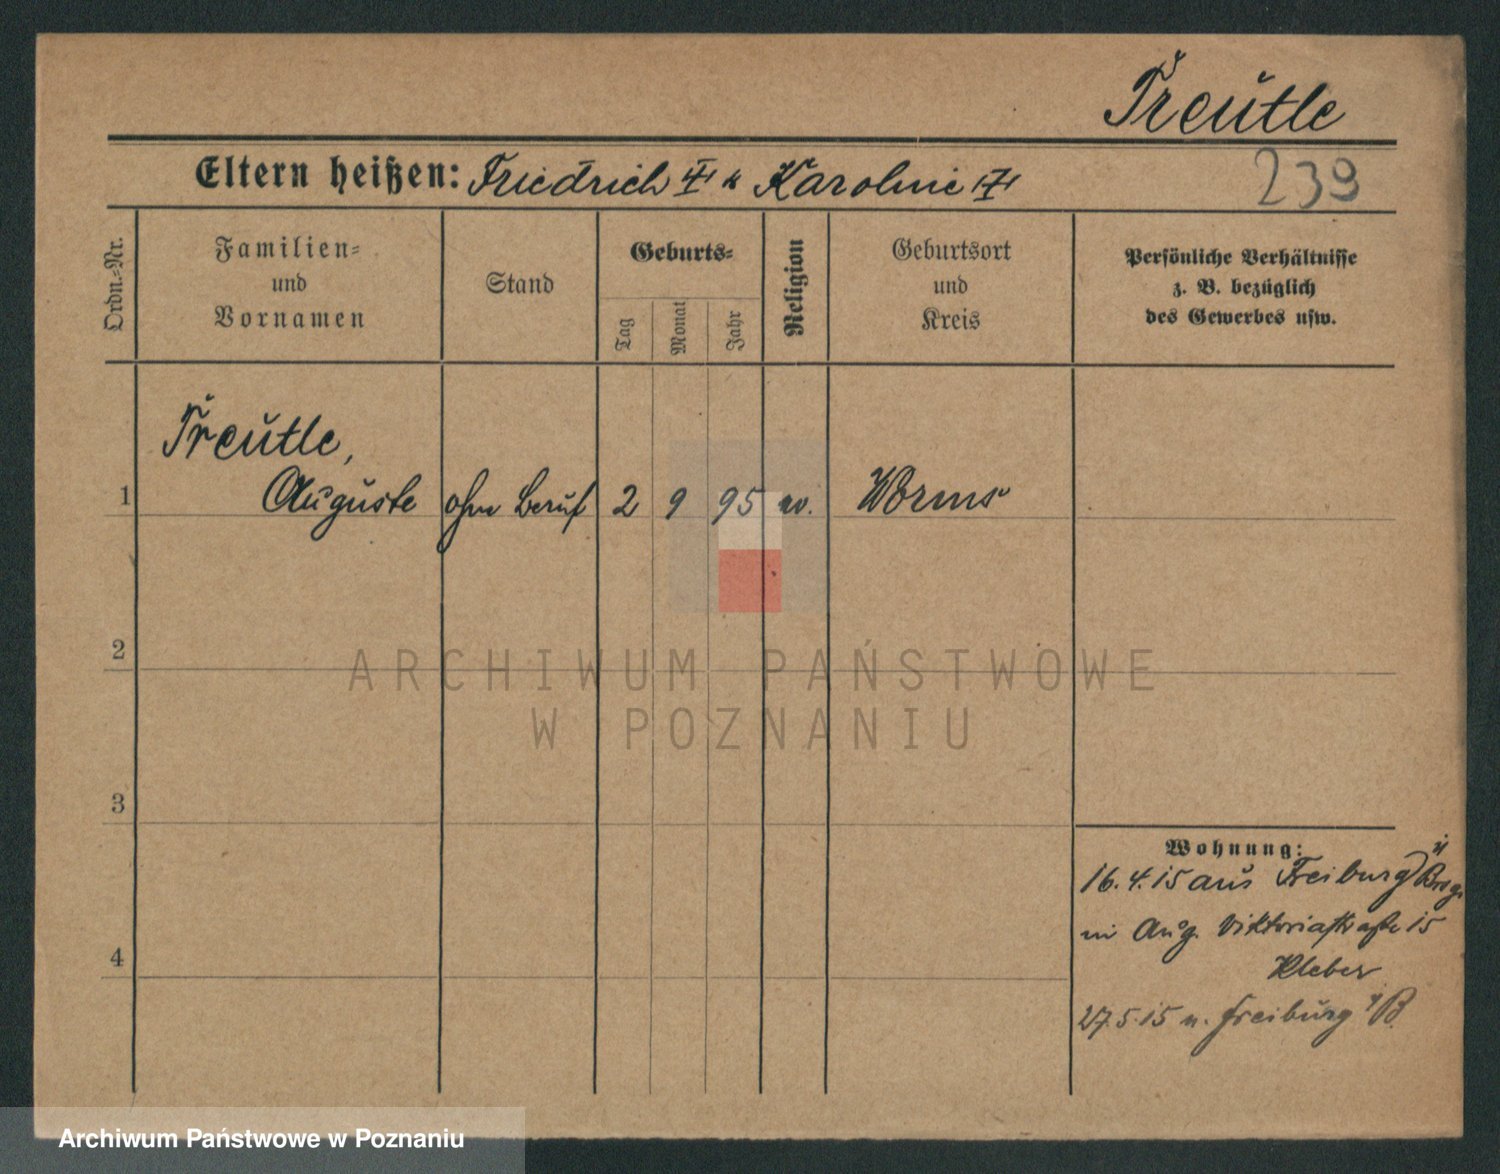 Treutle
Eltern heißen: Friedrich T & Karoline T
239
Ordn.=Nr.
Familien=
und
Vornamen
Stand
Geburts=
Tag
Monat
Jahr
Religion
Geburtsort
und
Kreis
Persönliche Verhältnisse
z. B. bezüglich
des Gewerbes usw.
Treutle,
1 Auguste ohne Beruf 2 9 95 ev. Worms
2
ARCHIWUM PAŃSTWOWE
W POZNANIU
3
Wohnung:
16.4.15 aus Freiburg i/
Aug. Viktoriastraße 15
4
Kleber
27.5.15 n. Freiburg i/B.
Archiwum Państwowe w Poznaniu